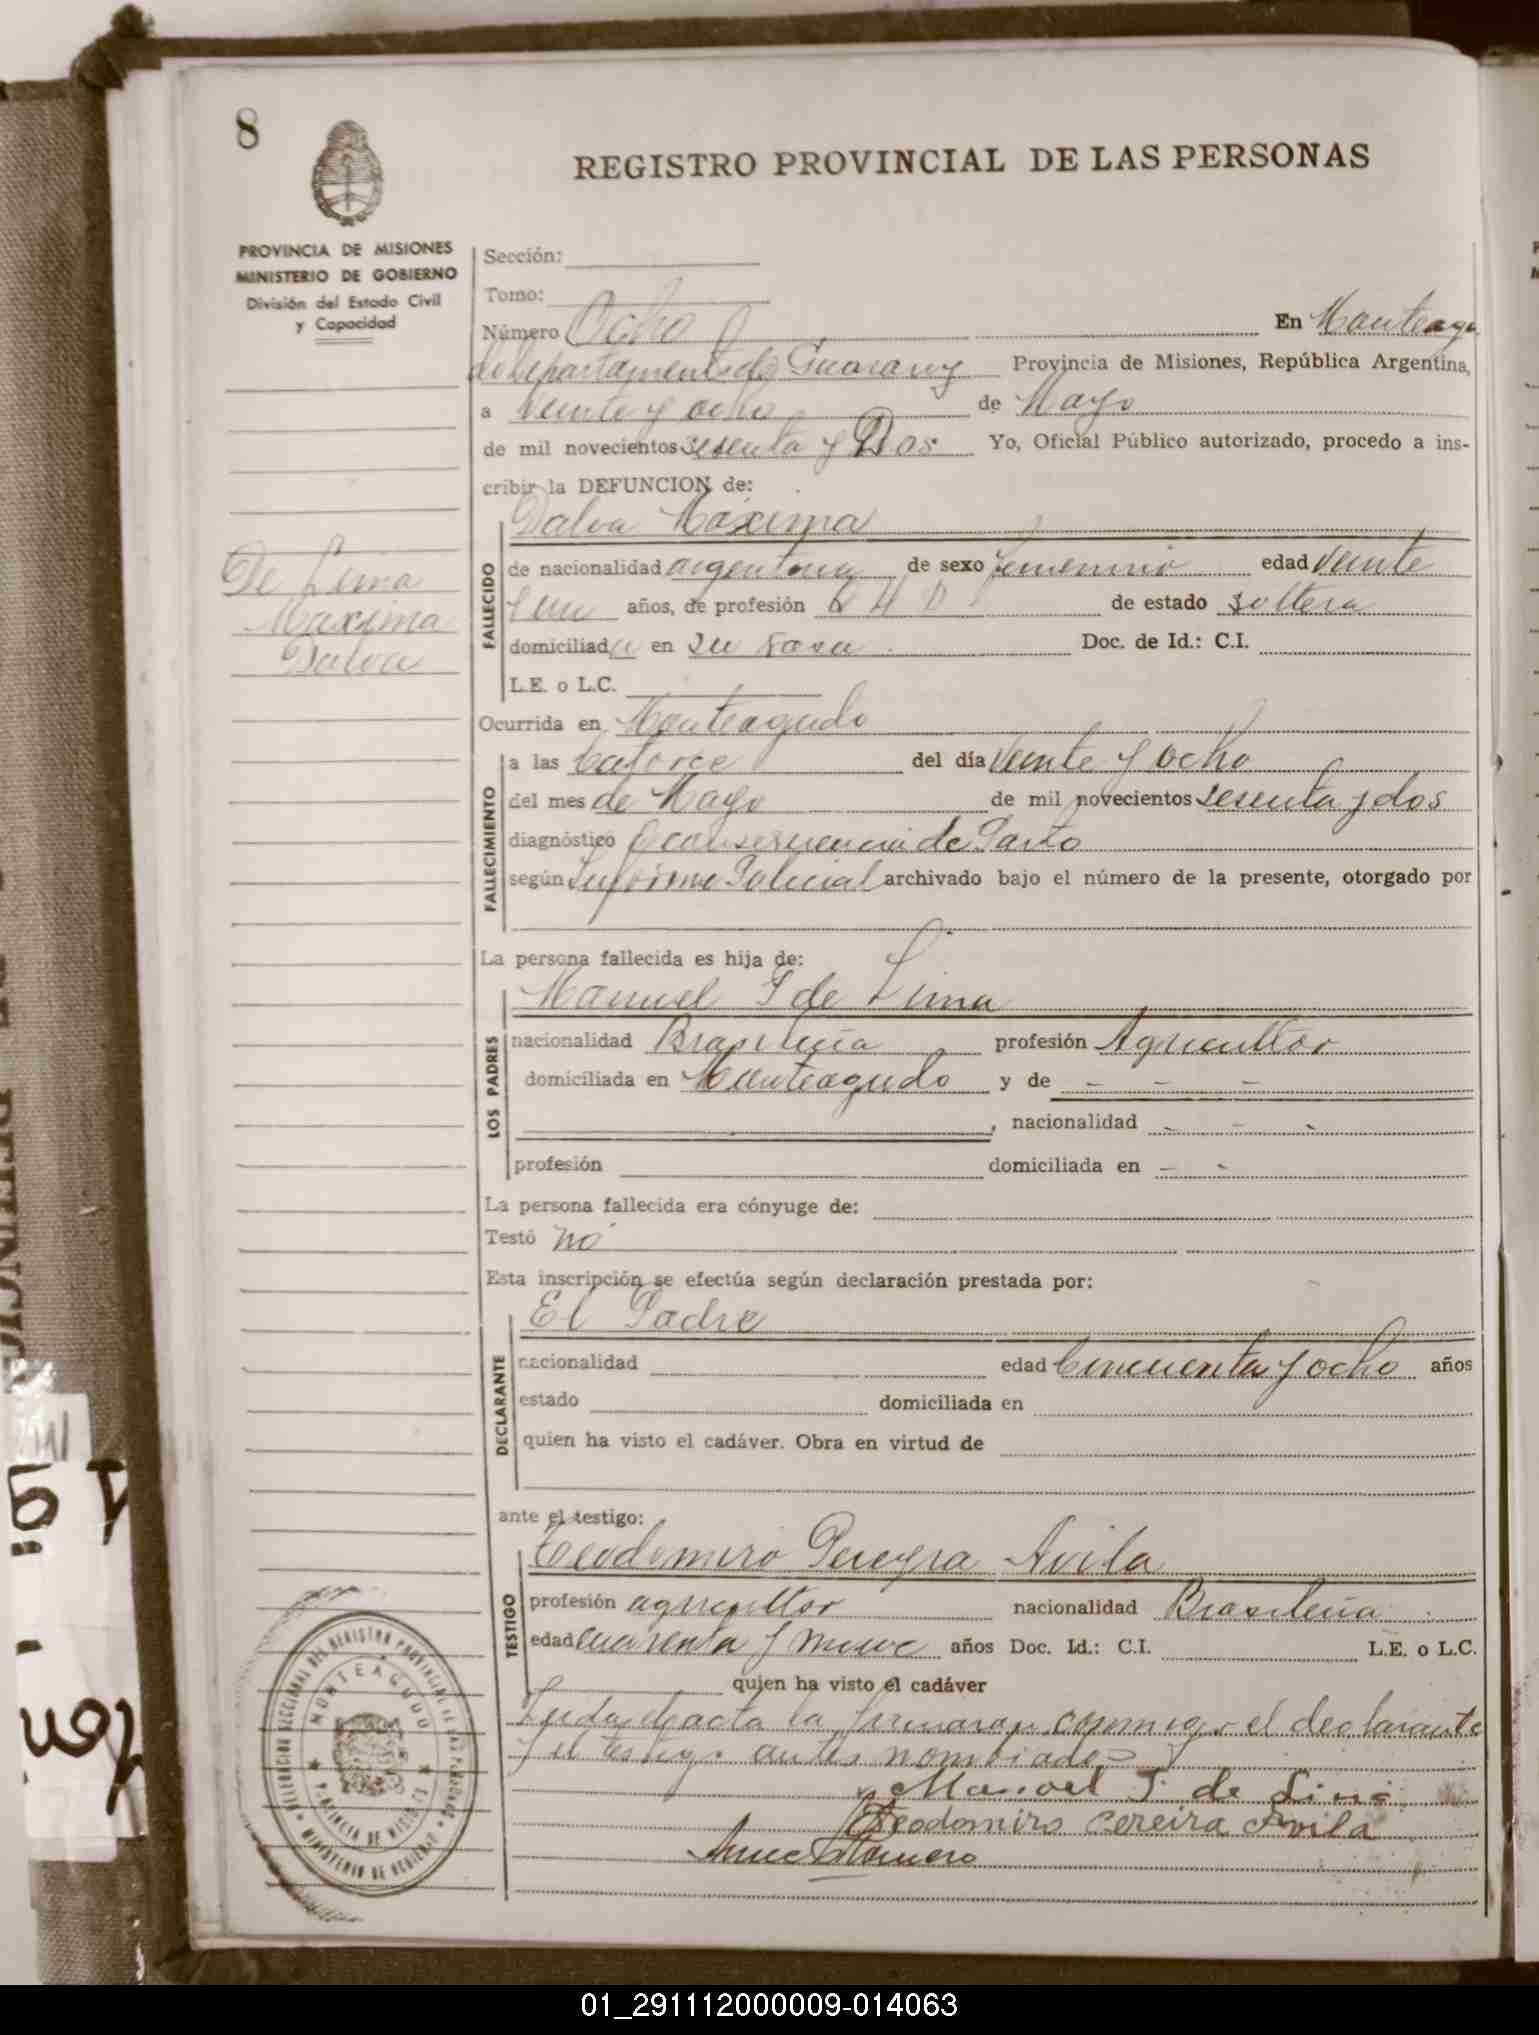 8
REGISTRO PROVINCIAL DE LAS PERSONAS
PROVINCIA DE MISIONES
MINISTERIO DE GOBIERNO
División del Estado Civil
y Capacidad
De Lima
Maxima
Dalva
Sección:
Tomo:
Número Ocho En Monteagu
do Departamento de Guarany Provincia de Misiones, República Argentina,
a veinte y ocho de Mayo
de mil novecientos sesenta y Dos Yo, Oficial Público autorizado, procedo a ins-
cribir la DEFUNCION de:
Dalva Máxima
FALLECIDO
de nacionalidad argentina de sexo femenino edad veinte
y un años, de profesión de estado soltera
domiciliada en su casa Doc. de Id.: C.I.
L.E. o L.C.
Ocurrida en Monteagudo
FALLECIMIENTO
a las catorce del día veinte y ocho
del mes de Mayo de mil novecientos sesenta y dos
diagnóstico consecuencia de Parto
según Informe Policial archivado bajo el número de la presente, otorgado por
La persona fallecida es hija de:
Manuel de Lima
LOS PADRES
nacionalidad Brasileña profesión Agricultor
domiciliada en Monteagudo y de - - -
, nacionalidad - - -
profesión domiciliada en - -
La persona fallecida era cónyuge de:
Testó no
Esta inscripción se efectúa según declaración prestada por:
El Padre
DECLARANTE
nacionalidad edad Cincuenta y ocho años
estado domiciliada en
quien ha visto el cadáver. Obra en virtud de
ante el testigo:
Teodomiro Pereyra Avila
TESTIGO
profesión agricultor nacionalidad Brasileña
edad cuarenta y nueve años Doc. Id.: C.I. L.E. o L.C.
quien ha visto el cadáver
Leida el acta la firmaran conmigo el declarante
y el testigo antes nombrados
Manoel de Lima
Teodomiro Pereira Avila
DELEGACION SECCIONAL DEL REGISTRO PROVINCIAL DE LAS PERSONAS
MONTEAGUDO
PROVINCIA DE MISIONES
MINISTERIO DE GOBIERNO
01_291112000009-014063